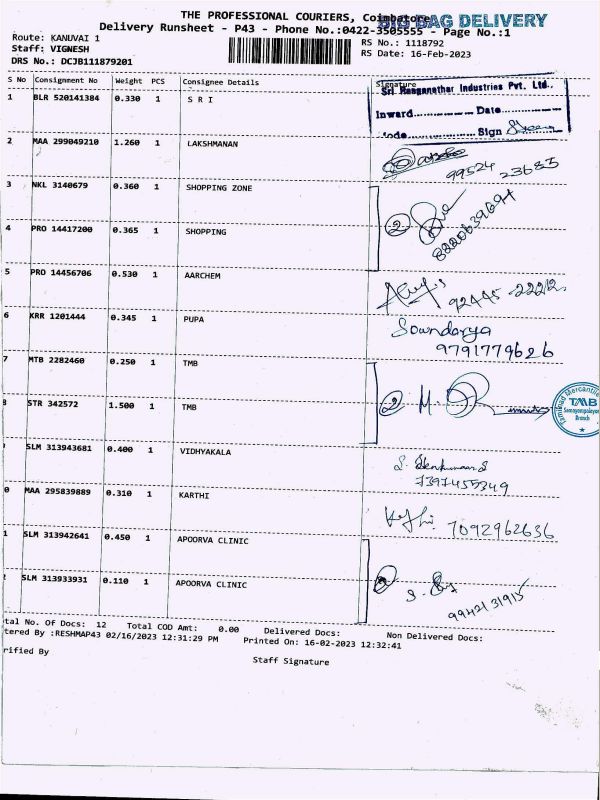 THE PROFESSIONAL COURIERS, Coimbatore
BIG BAG DELIVERY
Delivery Runsheet - P43 - Phone No.:0422-3505555 - Page No.:1
Route: KANUVAI 1
RS No.: 1118792
Staff: VIGNESH
RS Date: 16-Feb-2023
DRS No.: DCJB111879201
S No Consignment No Weight PCS Consignee Details Signature
Sri Ranganathar Industries Pvt. Ltd.,
1 BLR 520141384 0.330 1 S R I
Inward Date
Code Sign
2 MAA 299049210 1.260 1 LAKSHMANAN
99524 23683
3 NKL 3140679 0.360 1 SHOPPING ZONE
2
8220639694
4 PRO 14417200 0.365 1 SHOPPING
5 PRO 14456706 0.530 1 AARCHEM
92445 22212
6 KRR 1201444 0.345 1 PUPA
Soundarya
9791779626
7 MTB 2282460 0.250 1 TMB
2
Tamilnad Mercantile
TMB
Branch
8 STR 342572 1.500 1 TMB
SLM 313943681 0.400 1 VIDHYAKALA
7397455349
0 MAA 295839889 0.310 1 KARTHI
7092962636
1 SLM 313942641 0.450 1 APOORVA CLINIC
2
9942131915
SLM 313933931 0.110 1 APOORVA CLINIC
tal No. Of Docs: 12 Total COD Amt: 0.00 Delivered Docs: Non Delivered Docs:
tered By :RESHMAP43 02/16/2023 12:31:29 PM Printed On: 16-02-2023 12:32:41
rified By
Staff Signature